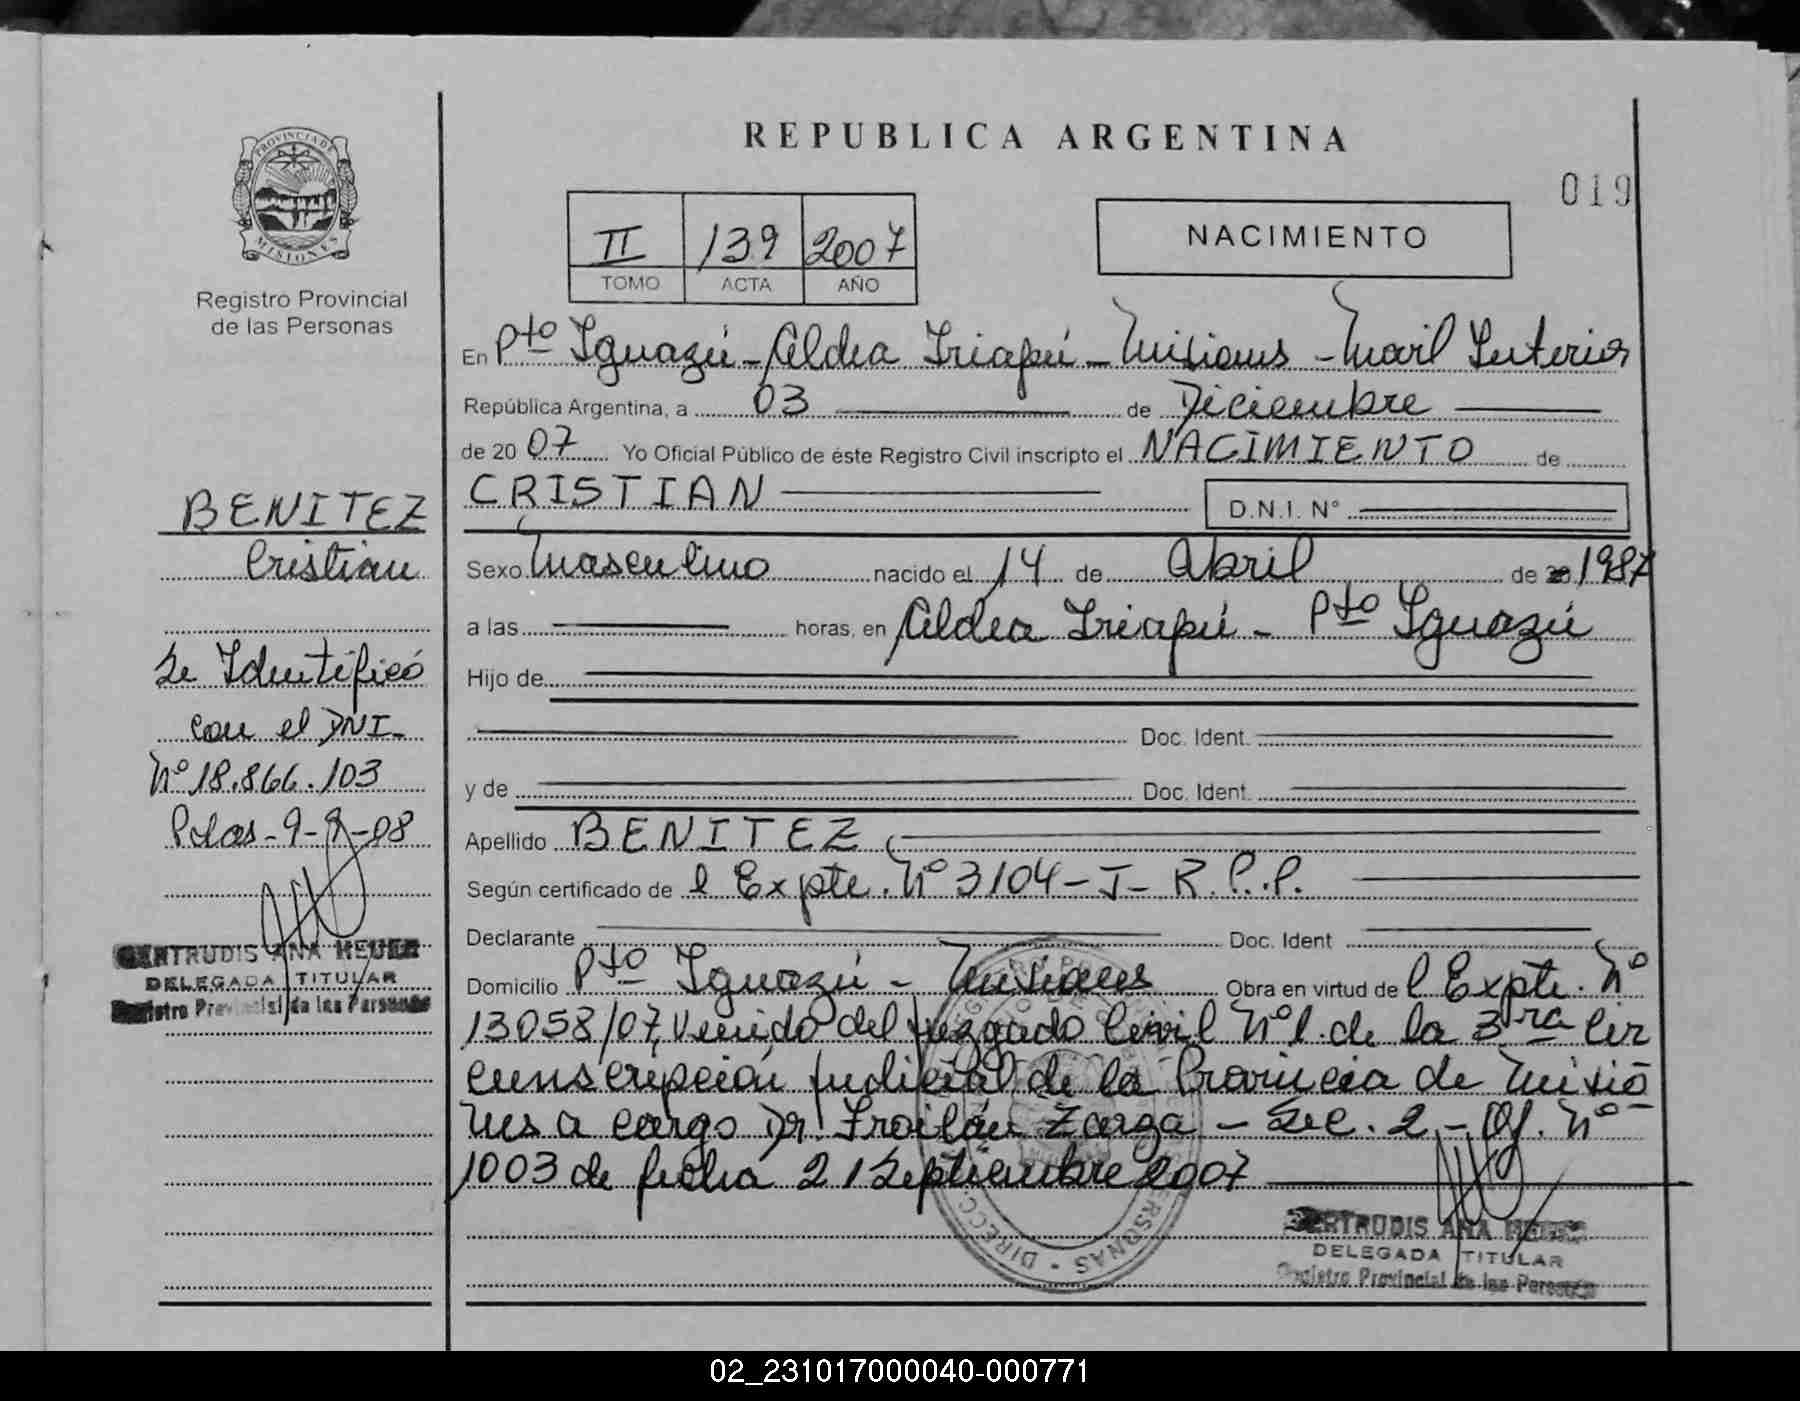 PROVINCIA DE
MISIONES
Registro Provincial
de las Personas
BENITEZ
Cristian
Se Identificó
con el DNI-
Nº 18.866.103
Pdas-9-9-08
GERTRUDIS ANA HEUER
DELEGADA TITULAR
Registro Provincial de las Personas
REPUBLICA ARGENTINA
019
II 139 2007
TOMO ACTA AÑO
NACIMIENTO
En Pto Iguazú - Aldea Iriapú - Misiones - Movil Interior
República Argentina, a 03 de Diciembre
de 2007 Yo Oficial Público de éste Registro Civil inscripto el NACIMIENTO de
CRISTIAN D.N.I. Nº
Sexo Masculino nacido el 14 de Abril de 20 1987
a las horas, en Aldea Iriapú - Pto Iguazú
Hijo de
Doc. Ident.
y de Doc. Ident.
Apellido BENITEZ
Según certificado de l Expte. Nº 3104-J-R.P.P.
Declarante Doc. Ident
Domicilio Pto Iguazú - Misiones Obra en virtud de l Expte. Nº
13058/07, Venido del Juzgado Civil Nº 1. de la 3ra Cir
cunscripción Judicial de la Provincia de Misio
nes a cargo Dr. Froilán Zarza - Sec. 2 - Of. Nº
1003 de fecha 21 Septiembre 2007
DIRECC. PERSONAS
GERTRUDIS ANA HEUER
DELEGADA TITULAR
Registro Provincial de las Personas
02_231017000040-000771